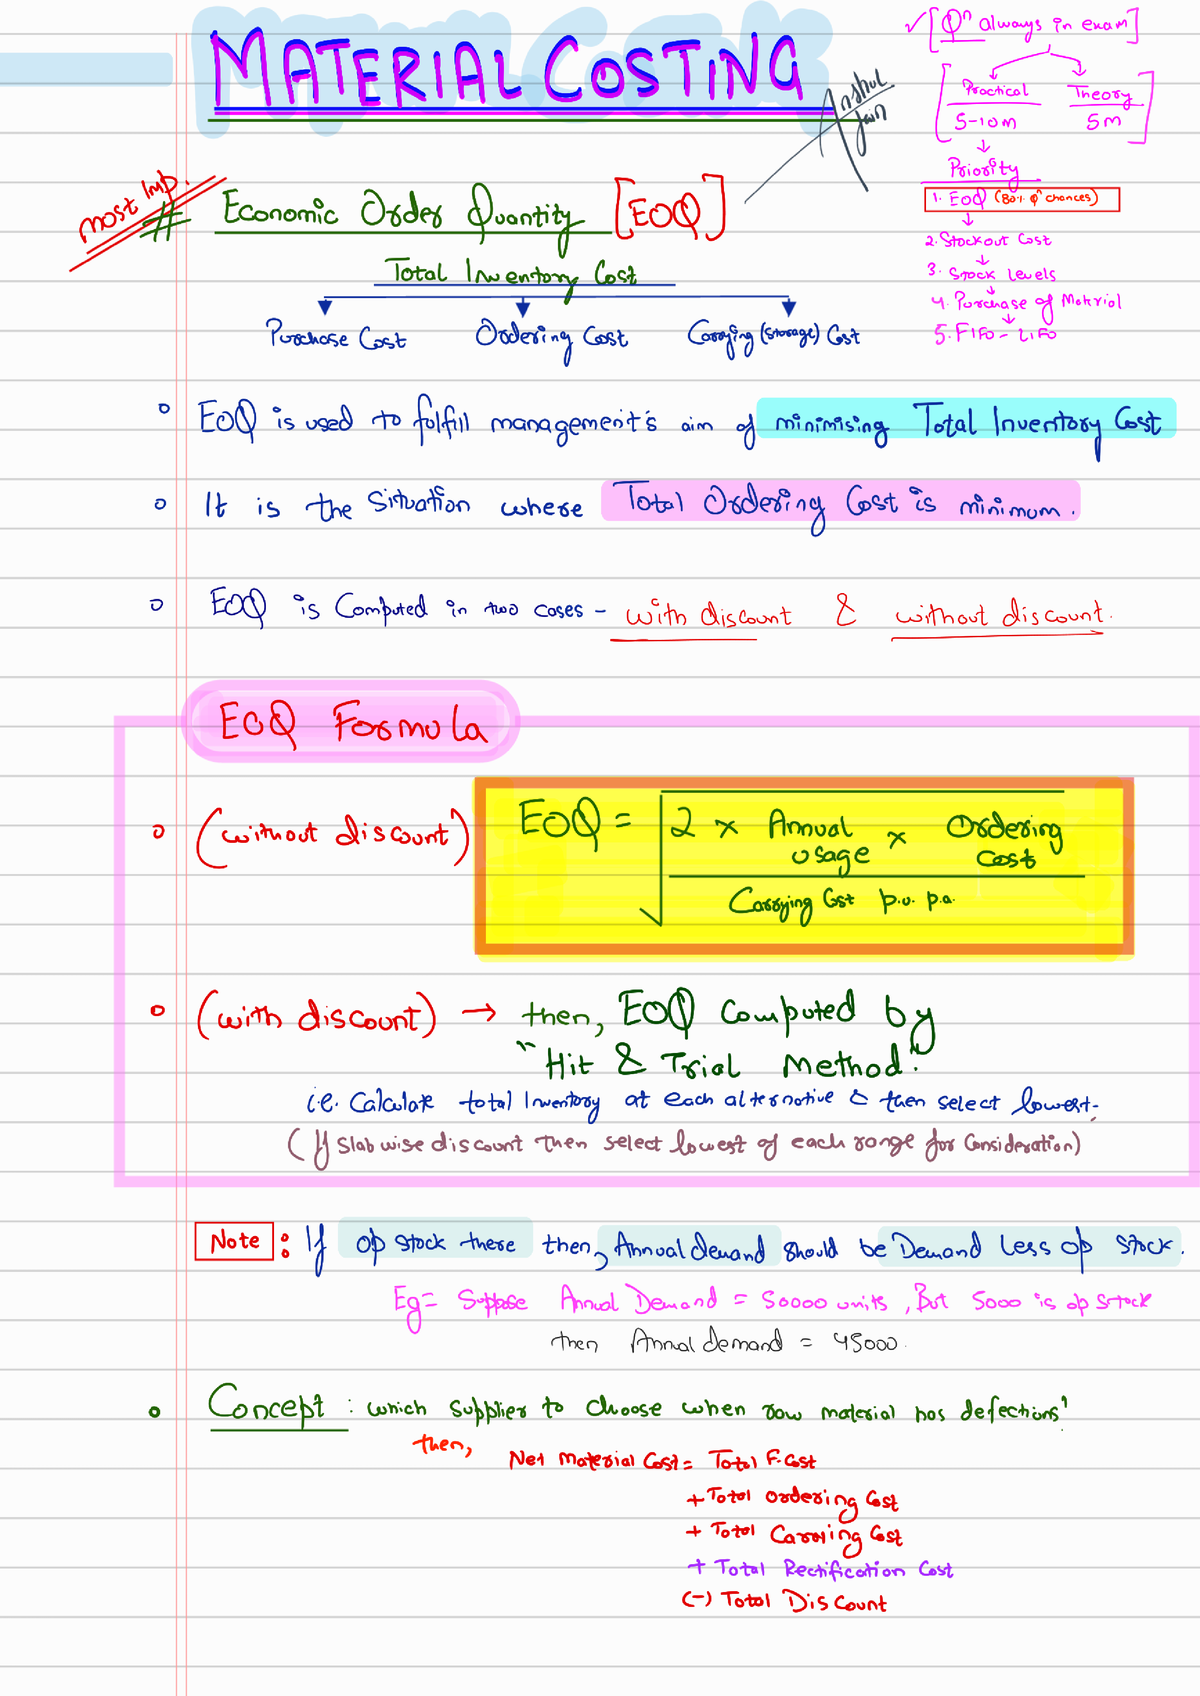 MATERIAL COSTING
Anshul Jain
✓[Qⁿ always in exam]
Practical Theory
5-10m 5m
Priority
1. EOQ (80% qⁿ chances)
2. Stockout Cost
3. Stock Levels
4. Purchase of Material
5. FIFO - LIFO
most Imp.
# Economic Order Quantity [EOQ]
Total Inventory Cost
Purchase Cost Ordering Cost Carrying (storage) Cost
EOQ is used to fulfill management's aim of minimising Total Inventory Cost
It is the Situation where Total Ordering Cost is minimum.
EOQ is Computed in two cases - with discount & without discount.
EOQ Formula
(without discount) EOQ = √ 2 × Annual usage × Ordering cost
Carrying Cost p.u. p.a.
(with discount) → then, EOQ Computed by
"Hit & Trial Method."
i.e. Calculate total Inventory at each alternative & then select lowest.
(If Slab wise discount then select lowest of each range for Consideration)
Note : If op stock there then, Annual demand should be Demand Less op stock.
Eg = Suppose Annual Demand = 50000 units, But 5000 is op stock
then Annual demand = 45000.
Concept : which supplier to choose when raw material has defections'
then, Net Material Cost = Total F. Cost
+ Total Ordering Cost
+ Total Carrying Cost
+ Total Rectification Cost
(-) Total Discount